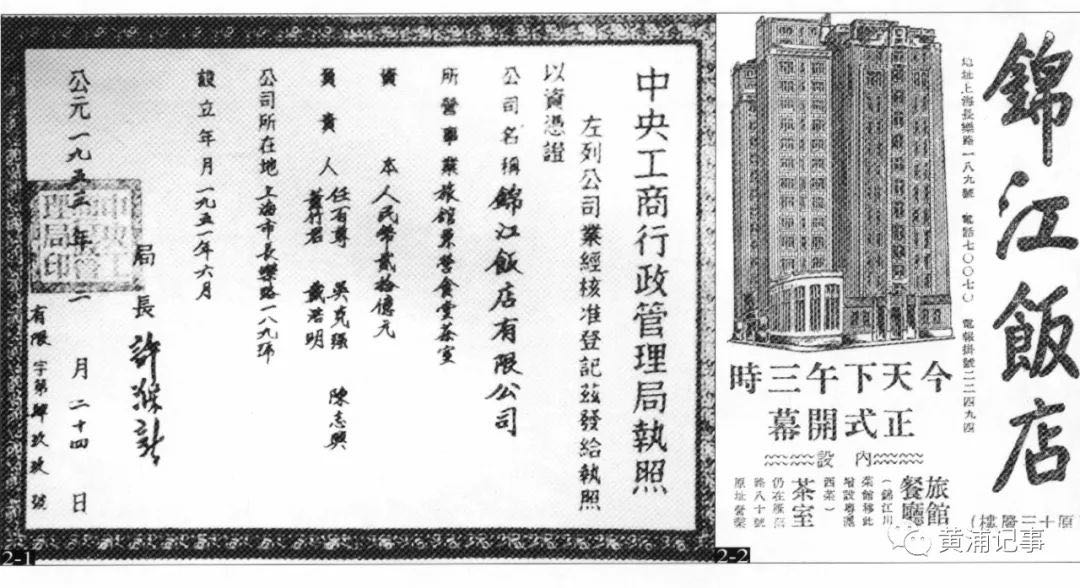 中央工商行政管理局執照
左列公司業經核准登記茲發給執照
以資憑證
公司名稱錦江飯店有限公司
所營事業旅館業兼營食堂茶室
資本人民幣貳拾億元
負責人任百尊 吳克強 陳志興
戴浩明
公司所在地上海市長樂路一八九號
設立年月一九五一年六月
局長許滌新
公元一九五三年
月二十四日
有限字第肆玖玖號
2-1
錦江飯店
地址上海長樂路一八九號 電話七〇〇七〇 電報掛號二二四九四
今天下午三時
正式開幕
內設
旅館
餐廳
(錦江川
菜館移此
增設粵滬
西菜)
茶室
仍在雁蕩
路八十號
原址營業
(原十三層樓)
2-2
黄浦记事